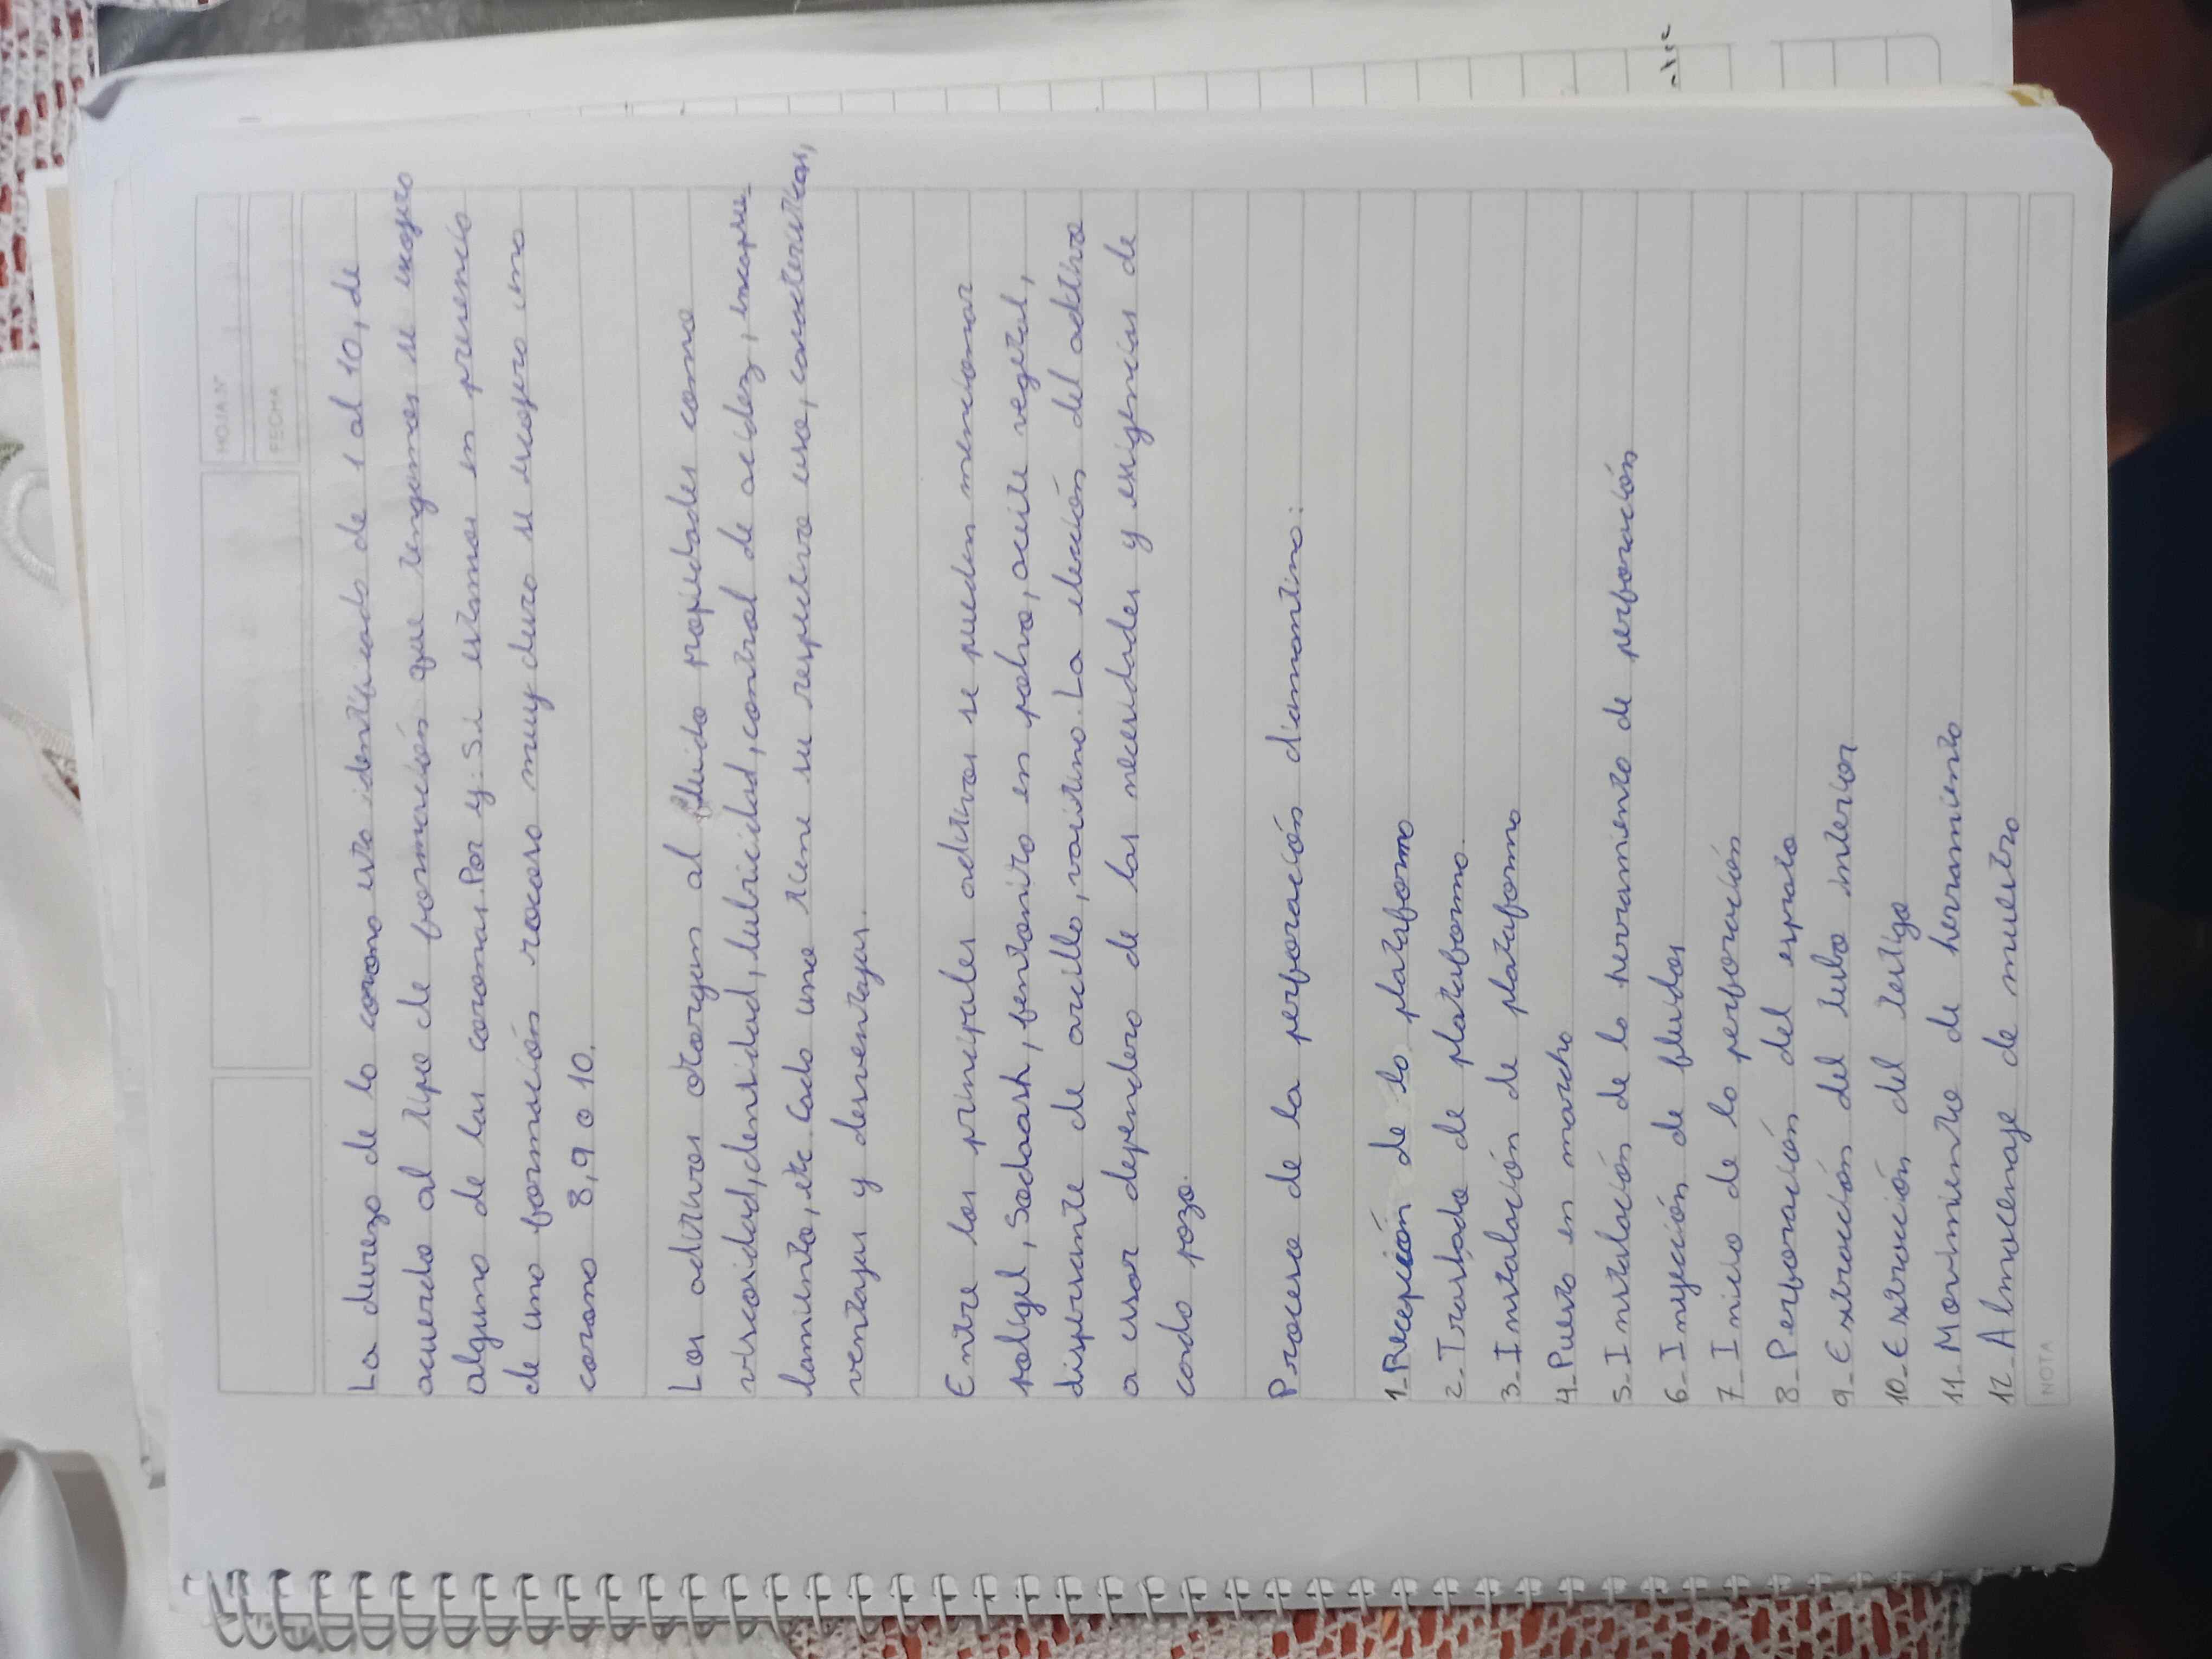 HOJA Nº
FECHA
La dureza de la corona esta identificada de 1 al 10, de
acuerdo al tipo de formación que tengamos se escogera
alguna de las coronas. Por ej: Si estamos en presencia
de una formación rocosa muy dura se escogera una
corona 8, 9 o 10.
Los aditivos otorgan al fluido propiedades como
viscosidad, densidad, lubricidad, control de acidez, encapsu-
lamiento, etc. Cada uno tiene su respectivo uso, caracteristicas,
ventajas y desventajas.
Entre los principales aditivos se pueden mencionar
polygel, Sodaash, bentonita en polvo, aceite vegetal,
dispersante de arcilla, The elección del aditivo
a usar dependera de las necesidades y exigencias de
cada pozo.
Proceso de la perforación diamantina:
1_Recepción de la plataforma
2_Traslado de plataforma.
3_Instalación de plataforma
4_Puesta en marcha
5_Instalación de la herramienta de perforación
6_Inyección de fluidos
7_Inicio de la perforación
8_Perforación del espacio
9_Extracción del tubo interior
10_Extracción del testigo
11_Movimiento de herramienta
12_Almacenaje de muestra
NOTA